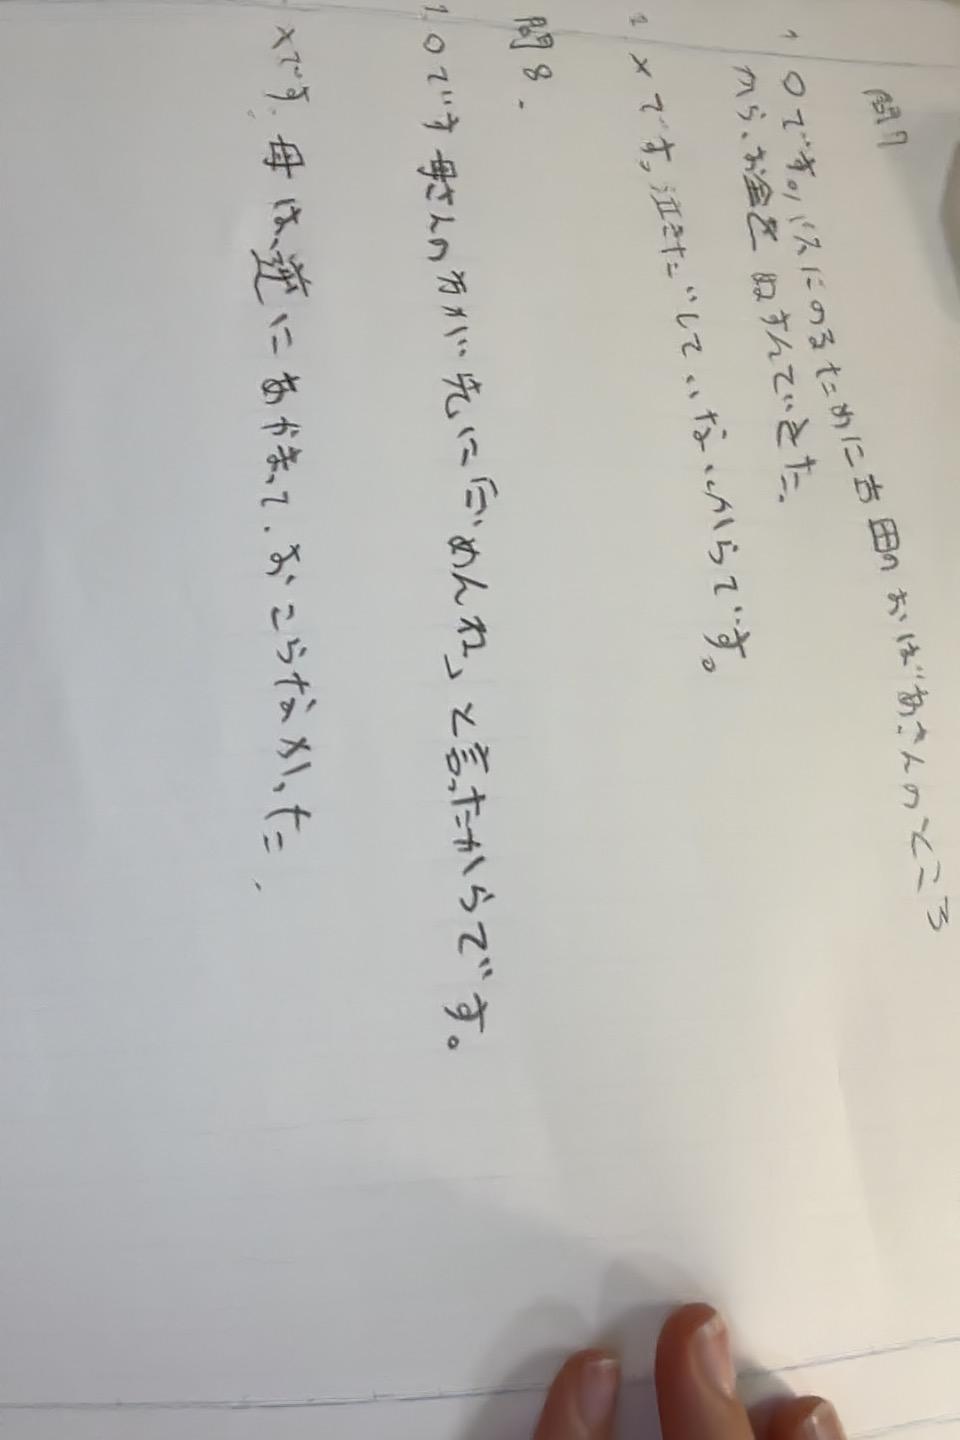 問7
1 〇です。バスにのるために吉田のおばあさんのところ
から、お金をぬすんでいきた。
2. ×です。泣きだしていないからです。
問8.
1. 〇です母さんの方が先に「ごめんね」と言ったからです。
×です。母は、逆にあやまって、おこらなかった.